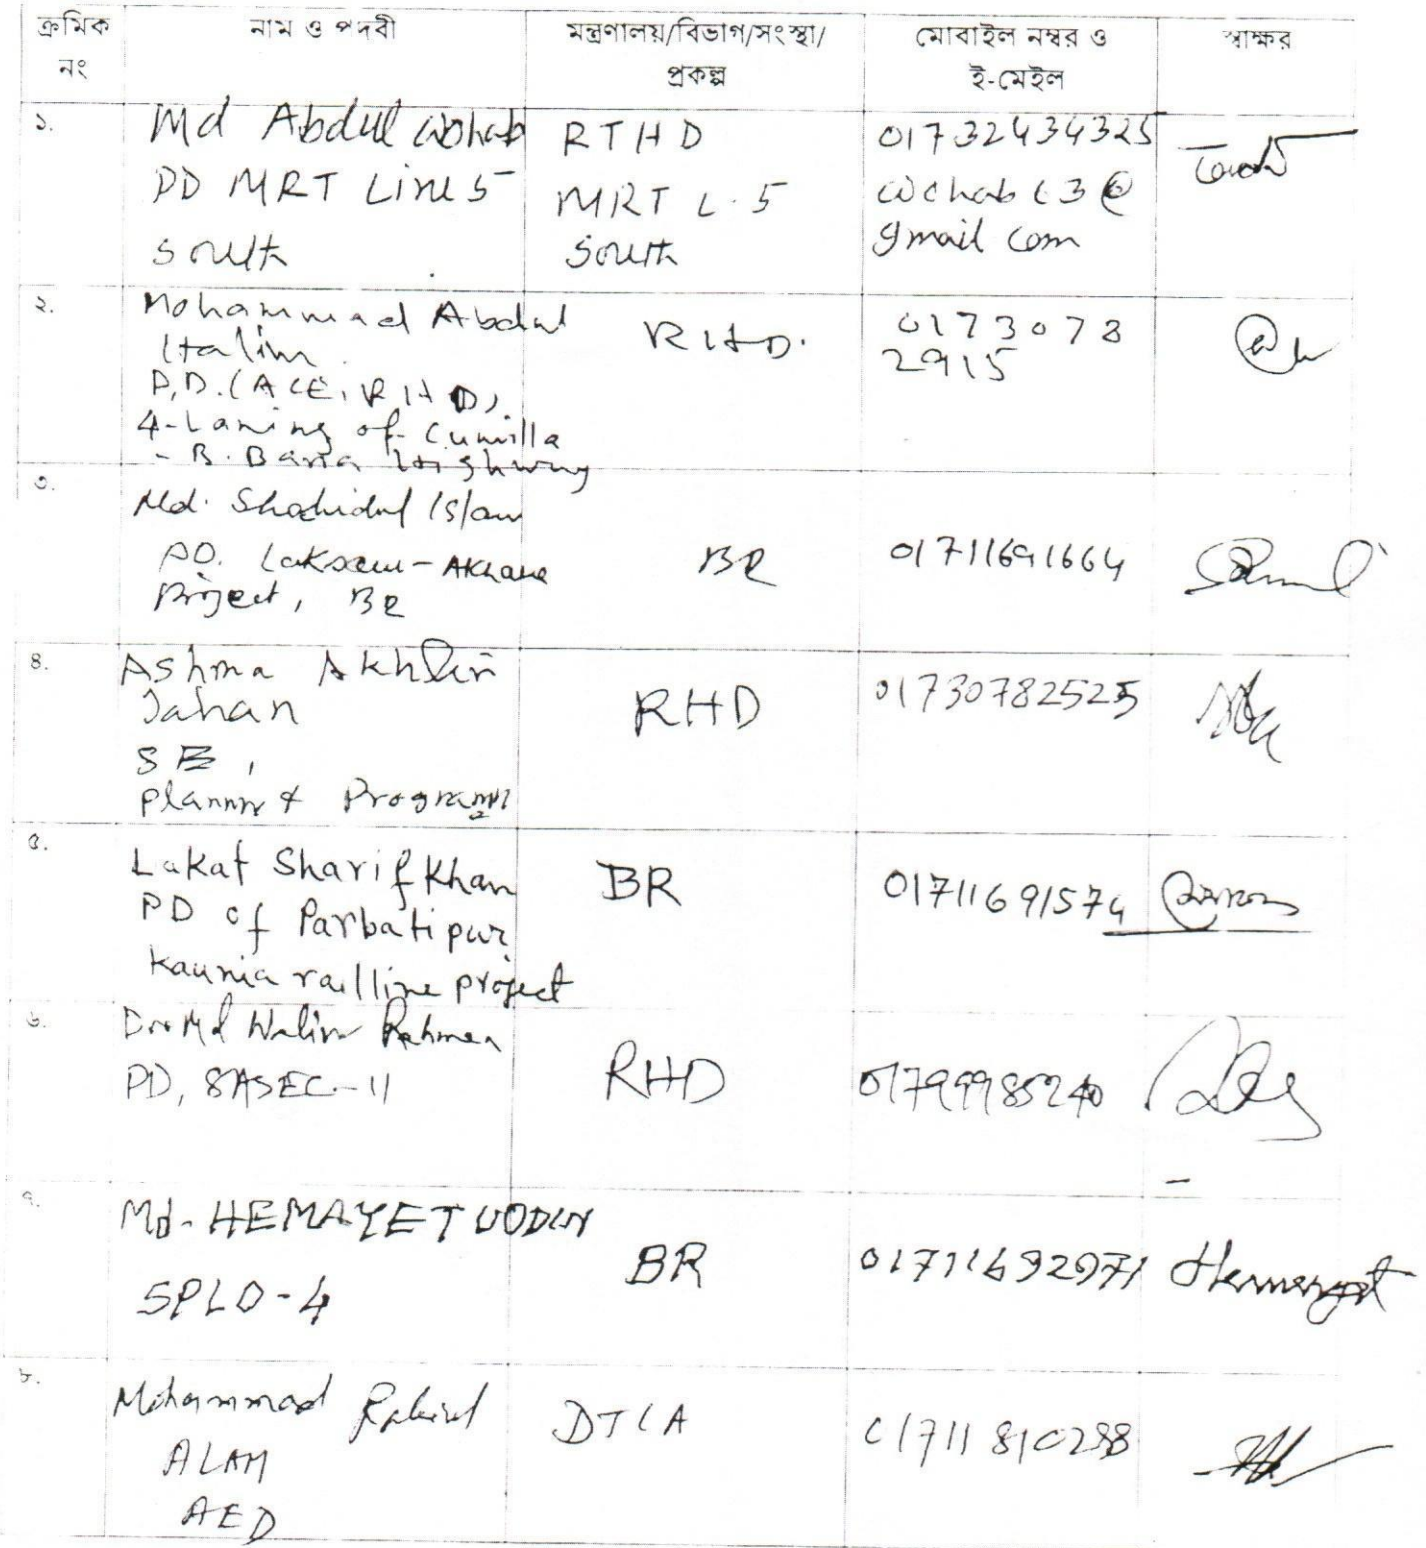 ক্রমিক নং নাম ও পদবী মন্ত্রণালয়/বিভাগ/সংস্থা/ প্রকল্প মোবাইল নম্বর ও ই-মেইল স্বাক্ষর
১.
Md Abdul Wohab
PD MRT Line 5
South
RTHD
MRT L.5
South
01732434325
@
gmail com
২.
Mohammad Abdul
Halim
P.D. (ACE, RHD).
4-Laning of Cumilla
- B. Baria Highway
RHD.
0173078
2915
৩.
Md. Shahidul Islam
PD. Laksam-Akhaura
Project, BR
BR
01711691664
৪.
Ashma Akhter
Jahan
SE,
Planning & Programming
RHD
01730782525
৫.
Lakat Sharif Khan
PD of Parbatipur
Kaunia railline project
BR
01711691574
৬.
Dr. Md Waliur Rahman
PD, SASEC-II
RHD
01799985240
৭.
Md. HEMAYET UDDIN
SPLO-4
BR
01711692971
৮.
Mohammad
ALAM
AED
DTCA
01711810288